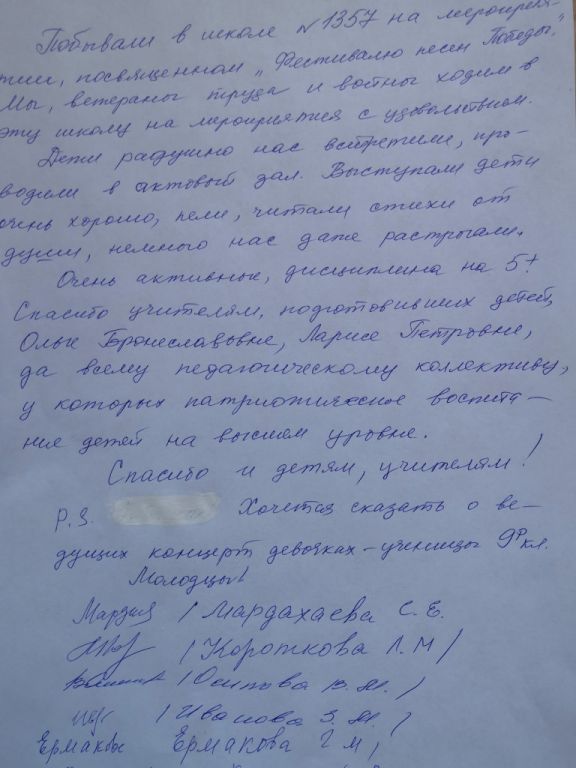 Побывали в школе №1357 на мероприя-
тии, посвященном „Фестивалю песен Победы."
Мы, ветераны труда и войны ходим в
эту школу на мероприятия с удовольствием.
Дети радушно нас встретили, про-
водили в актовый зал. Выступали дети
очень хорошо, пели, читали стихи от
души, немного нас даже растрогали.
Очень активные, дисциплина на 5+
Спасибо учителям, подготовивших детей,
Ольге Брониславовне, Ларисе Петровне,
да всему педагогическому коллективу,
у которых патриотическое воспита-
ние детей на высшем уровне.
Спасибо и детям, учителям!
P.S. Хочется сказать о ве-
дущих концерт девочках - ученицы 9 кл.
Молодцы!
/ Мардахаева С. Е.
/ Короткова Л. М /
/ Осипова В. М. /
/ Иванова З. М. /
Ермакова Г М /